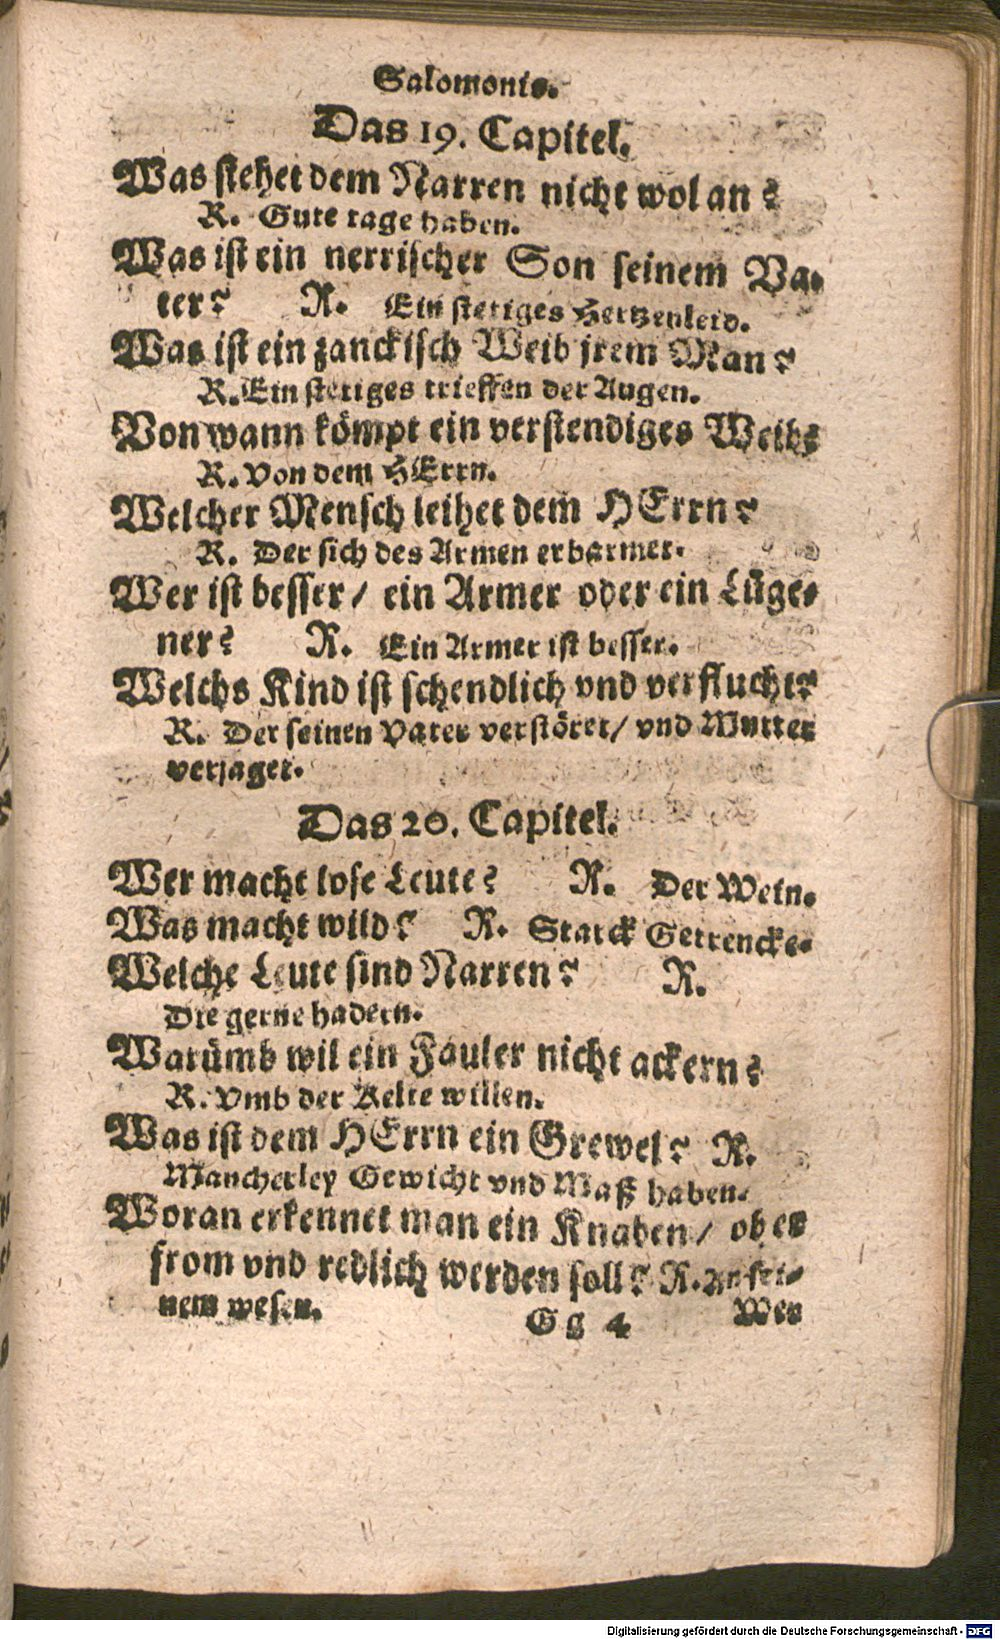 Salomonis.
Das 19. Capitel.
Was stehet dem Narren nicht wol an?
R. Gute tage haben.
Was ist ein nerrischer Son seinem Va-
ter? R. Ein stetiges Hertzenleid.
Was ist ein zanckisch Weib jrem Man?
R. Ein stetiges trieffen der Augen.
Von wann kömpt ein verstendiges Weib?
R. Von dem HErrn.
Welcher Mensch leihet dem HErrn?
R. Der sich des Armen erbarmet.
Wer ist besser / ein Armer oder ein Lüge-
ner? R. Ein Armer ist besser.
Welchs Kind ist schendlich vnd verflucht?
R. Der seinen Vater verstöret / vnd Mutter
verjaget.
Das 20. Capitel.
Wer macht lose Leute? R. Der Wein.
Was macht wild? R. Starck Getrencke.
Welche Leute sind Narren? R.
Die gerne hadern.
Warümb wil ein Fauler nicht ackern?
R. Vmb der Kelte willen.
Was ist dem HErrn ein Grewel? R.
Mancherley Gewicht vnd Maß haben.
Woran erkennet man ein Knaben / ob er
from vnd redlich werden soll? R. An sei-
nem wesen.
G g 4 Wen
Digitalisierung gefördert durch die Deutsche Forschungsgemeinschaft - DFG